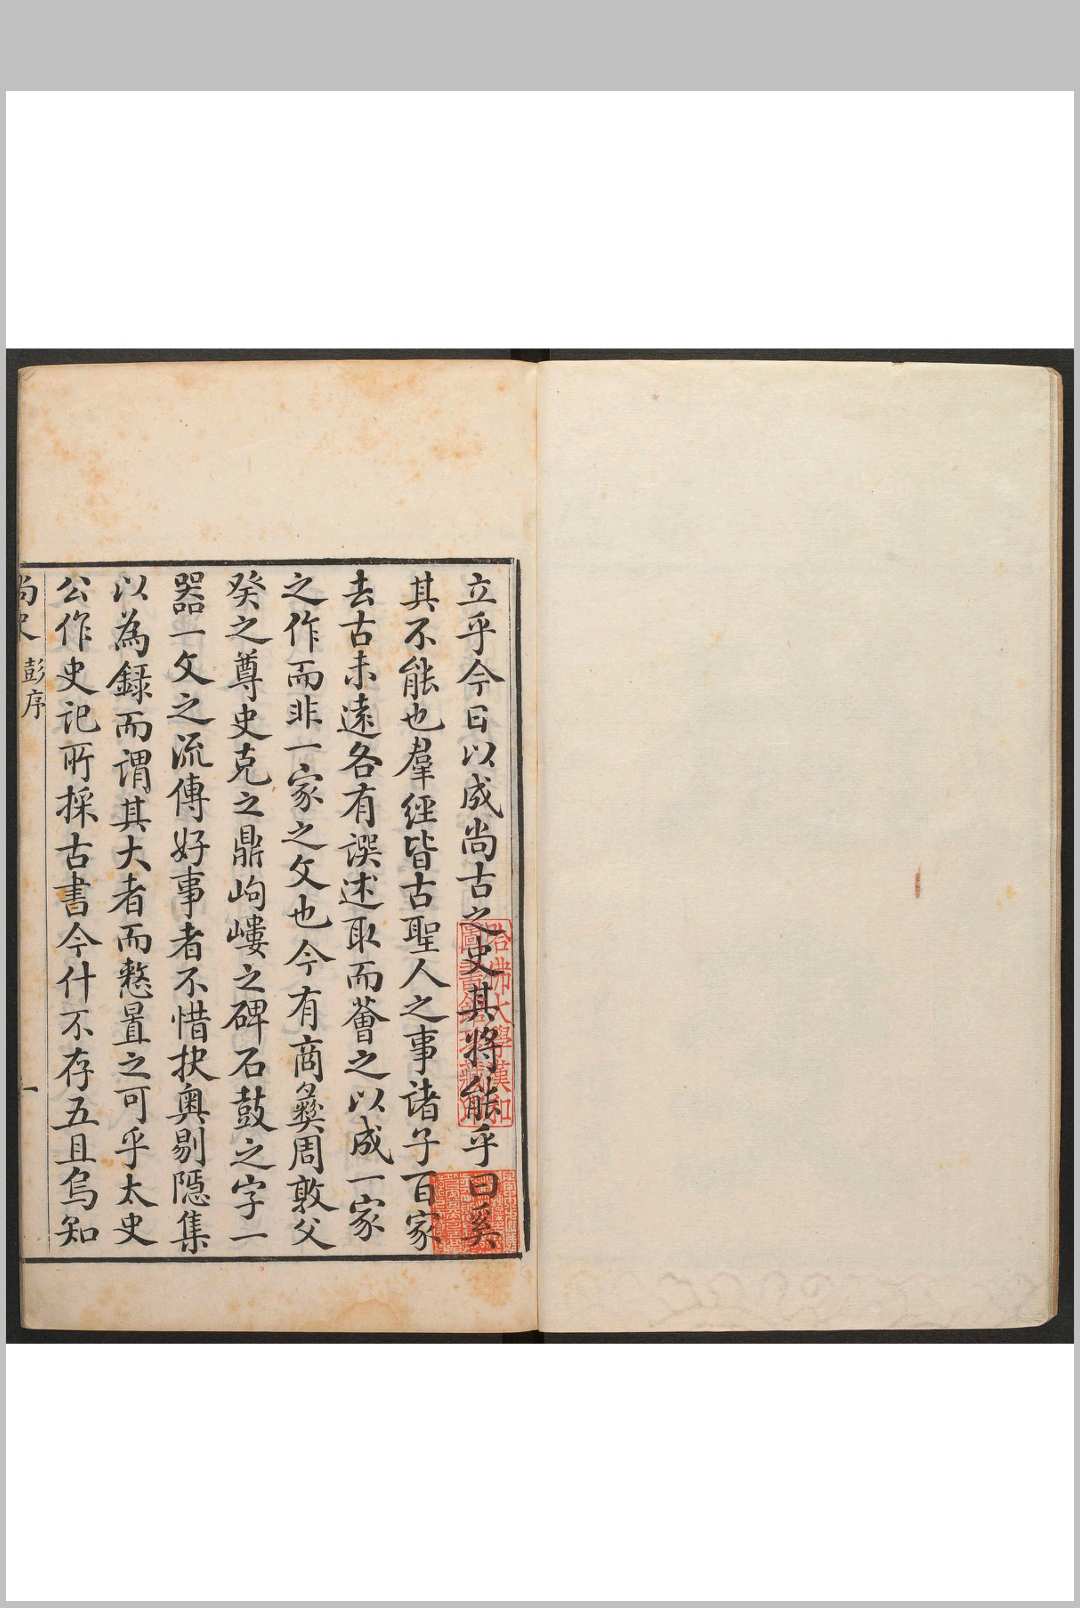 立乎今日以成尚古之史其將能乎曰奚
其不能也羣經皆古聖人之事諸子百家
去古未遠各有譔述取而薈之以成一家
之作而非一家之文也今有商彝周敦父
癸之尊史克之鼎岣嶁之碑石鼓之字一
器一文之流傳好事者不惜抉奥剔隱集
以為錄而謂其大者而憗置之可乎太史
公作史記所採古書今什不存五且烏知
尚史 彭序 一
哈佛大學漢和
圖書館珍藏印